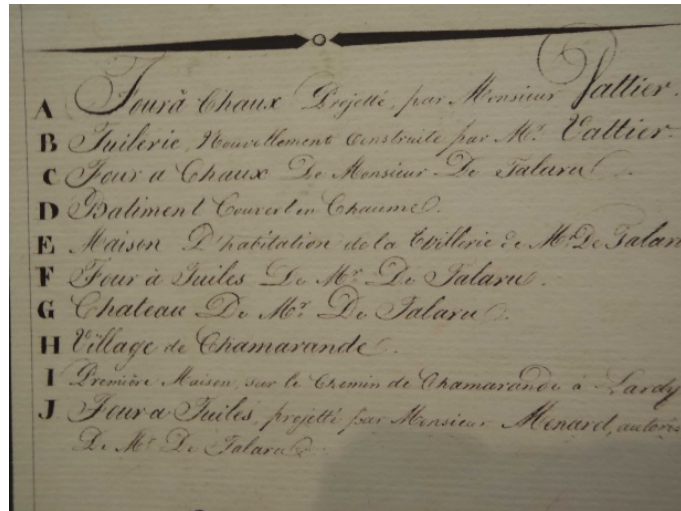 A Four à Chaux Projetté, par Monsieur Vattier.
B Tuilerie, Nouvellement Construite par Mr. Vattier.
C Four a Chaux De Monsieur De Talaru.
D Batiment Couvert en Chaume.
E Maison D'habitation de la Thillerie de Mr. De Talaru
F Four à Tuiles De Mr. De Talaru.
G Chateau De Mr. De Talaru.
H Village de Chamarande.
I Première Maison, sur le Chemin de Chamarande à Lardy
J Four a Tuiles, projetté par Monsieur Menard,
De Mr De Talaru